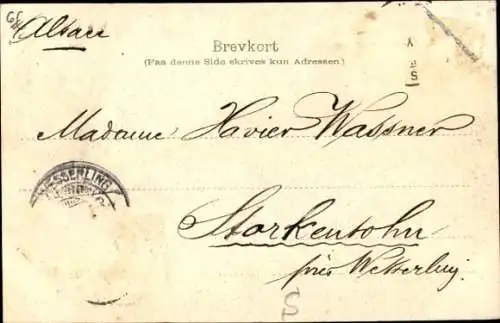 Alsace
Brevkort
(Paa denne Side skrives kun Adressen.)
Madame Xavier Wassner
WESSERLING
Storkensohn
près Wesserling
S